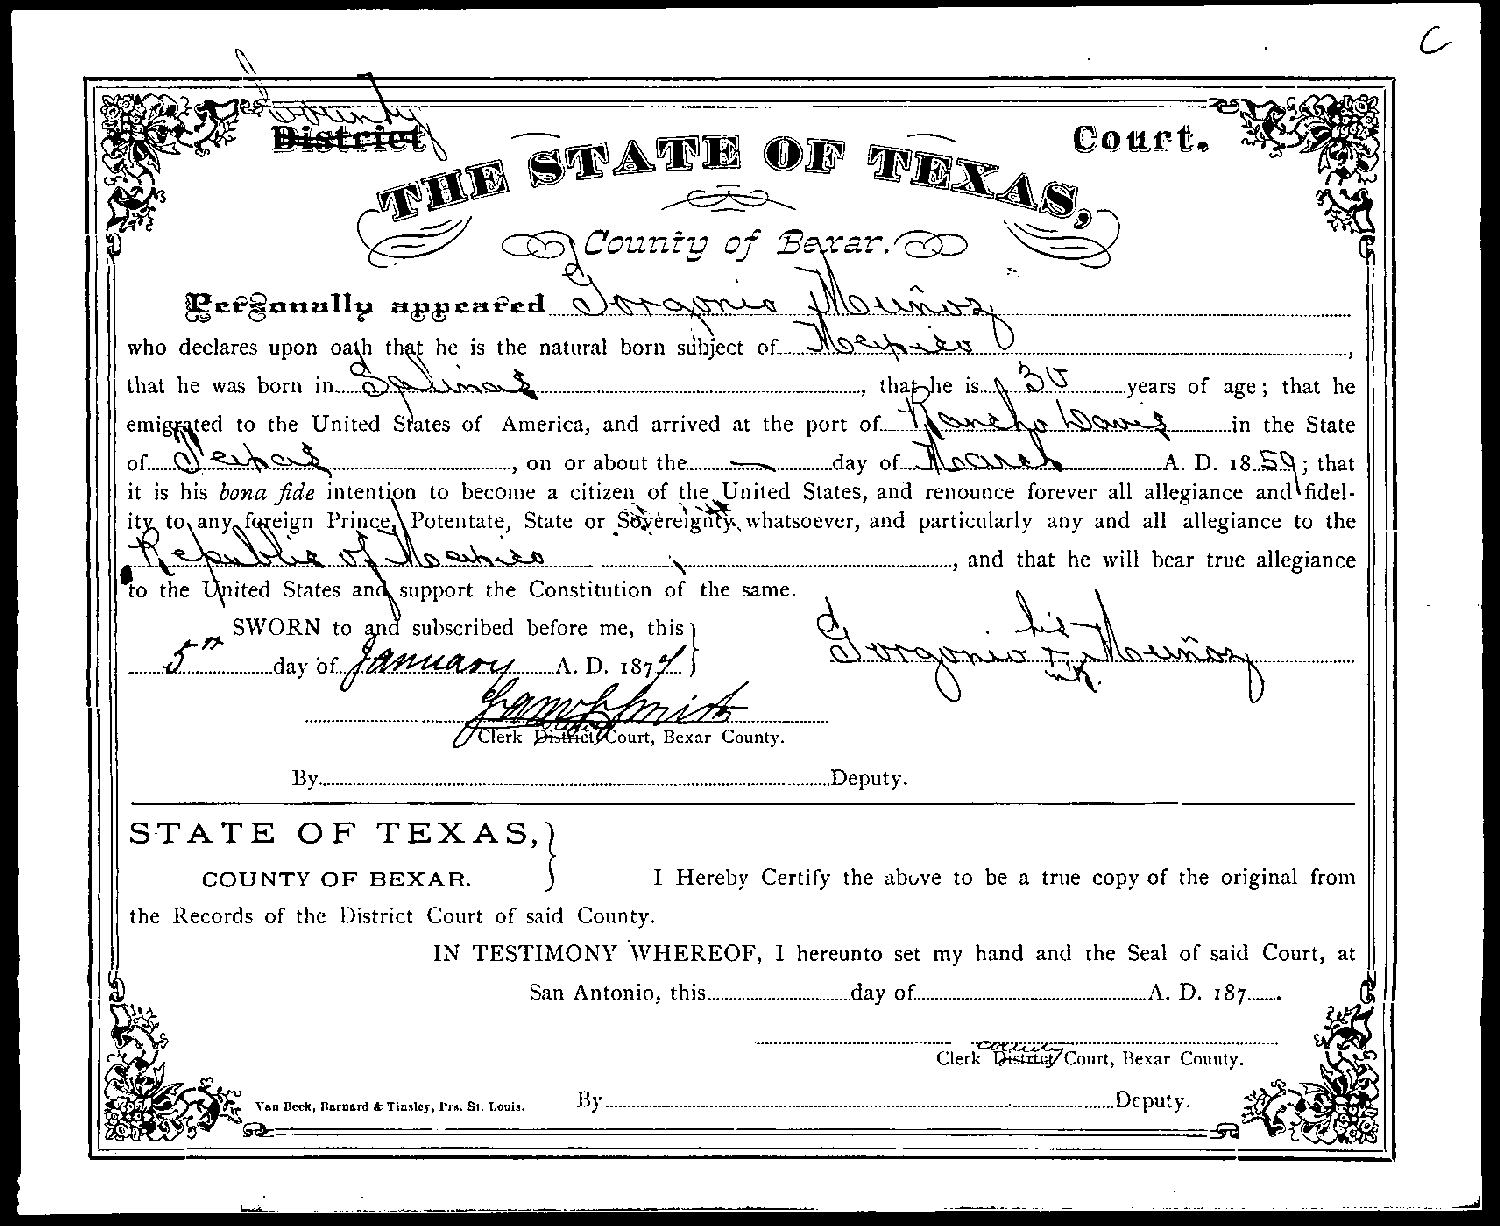 C
County
District Court.
THE STATE OF TEXAS,
County of Bexar.
Personally appeared Gorgonio Muñoz
who declares upon oath that he is the natural born subject of Mexico,
that he was born in Salinas, that he is 30 years of age; that he
emigrated to the United States of America, and arrived at the port of Rancho Davis in the State
of Texas, on or about the — day of March A. D. 1859; that
it is his bona fide intention to become a citizen of the United States, and renounce forever all allegiance and fidel-
ity to any foreign Prince, Potentate, State or Sovereignty whatsoever, and particularly any and all allegiance to the
Republic of Mexico, and that he will bear true allegiance
to the United States and support the Constitution of the same.
SWORN to and subscribed before me, this
5th day of January A. D. 187
his
Gorgonio x Muñoz
mk.
Sam S Smith
Clerk District Court, Bexar County.
By Deputy.
STATE OF TEXAS,
COUNTY OF BEXAR.
I Hereby Certify the above to be a true copy of the original from
the Records of the District Court of said County.
IN TESTIMONY WHEREOF, I hereunto set my hand and the Seal of said Court, at
San Antonio, this day of A. D. 187 .
county
Clerk District Court, Bexar County.
Van Beek, Barnard & Tinsley, Prs. St. Louis.
By Deputy.